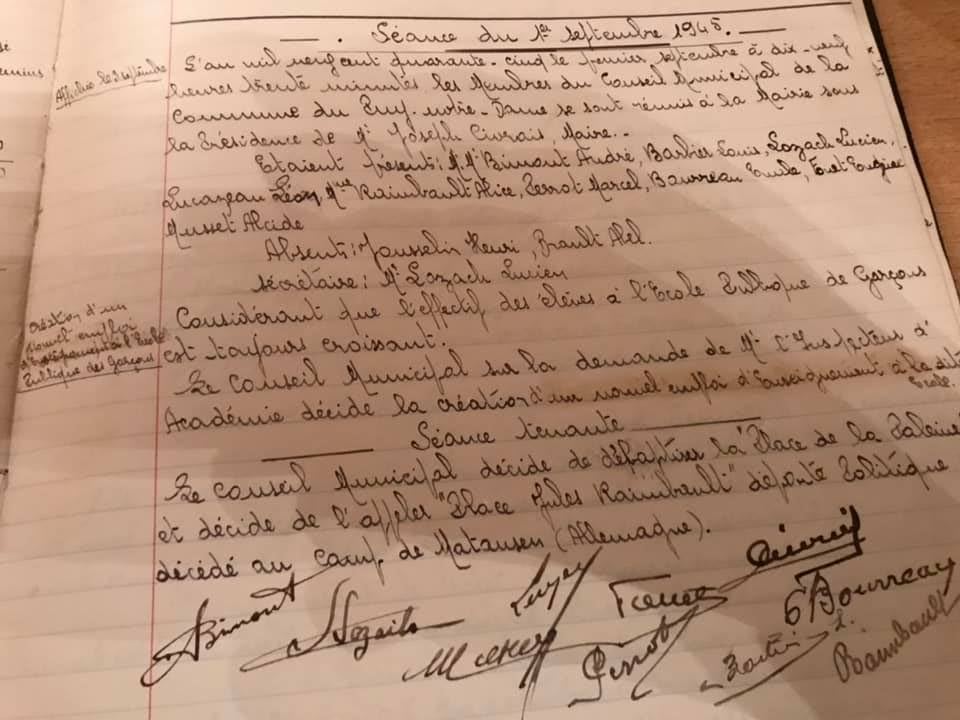 Séance du 1er septembre 1945.
Affichée le 2 septembre
L'an mil neuf cent quarante-cinq le premier septembre à dix-neuf
heures trente minutes les Membres du Conseil Municipal de la
Commune du Puy-notre-Dame se sont réunis à la Mairie sous
la Présidence de Mr Joseph Civrais, Maire..
Etaient présents: M.M. Bimont André, Barbier Louis, Lozach Lucien,
Lucazeau Léon, Mme Raimbault Alice, Perrot Marcel, Bourreau Emile, Foret Eugène
Musset Alcide
Absents: Jousselin Henri, Brault Abel.
Secrétaire: Mr Lozach Lucien
création d'un
nouvel emploi
d'Enseignement à l'Ecole
Publique des Garçons
Considérant que l'effectif des élèves à l'Ecole Publique de Garçons
est toujours croissant.
Le Conseil Municipal sur la demande de Mr l'Inspecteur d'
Académie décide la création d'un nouvel emploi d'Enseignement à la dite
Ecole.
Séance tenante
Le Conseil Municipal décide de débaptiser la "Place de la
et décide de l'appeler "Place Jules Raimbault" déporté Politique
décédé au Camp de Matausen (Allemagne).
Bimont
Perrot
E Bourreau
Raimbault